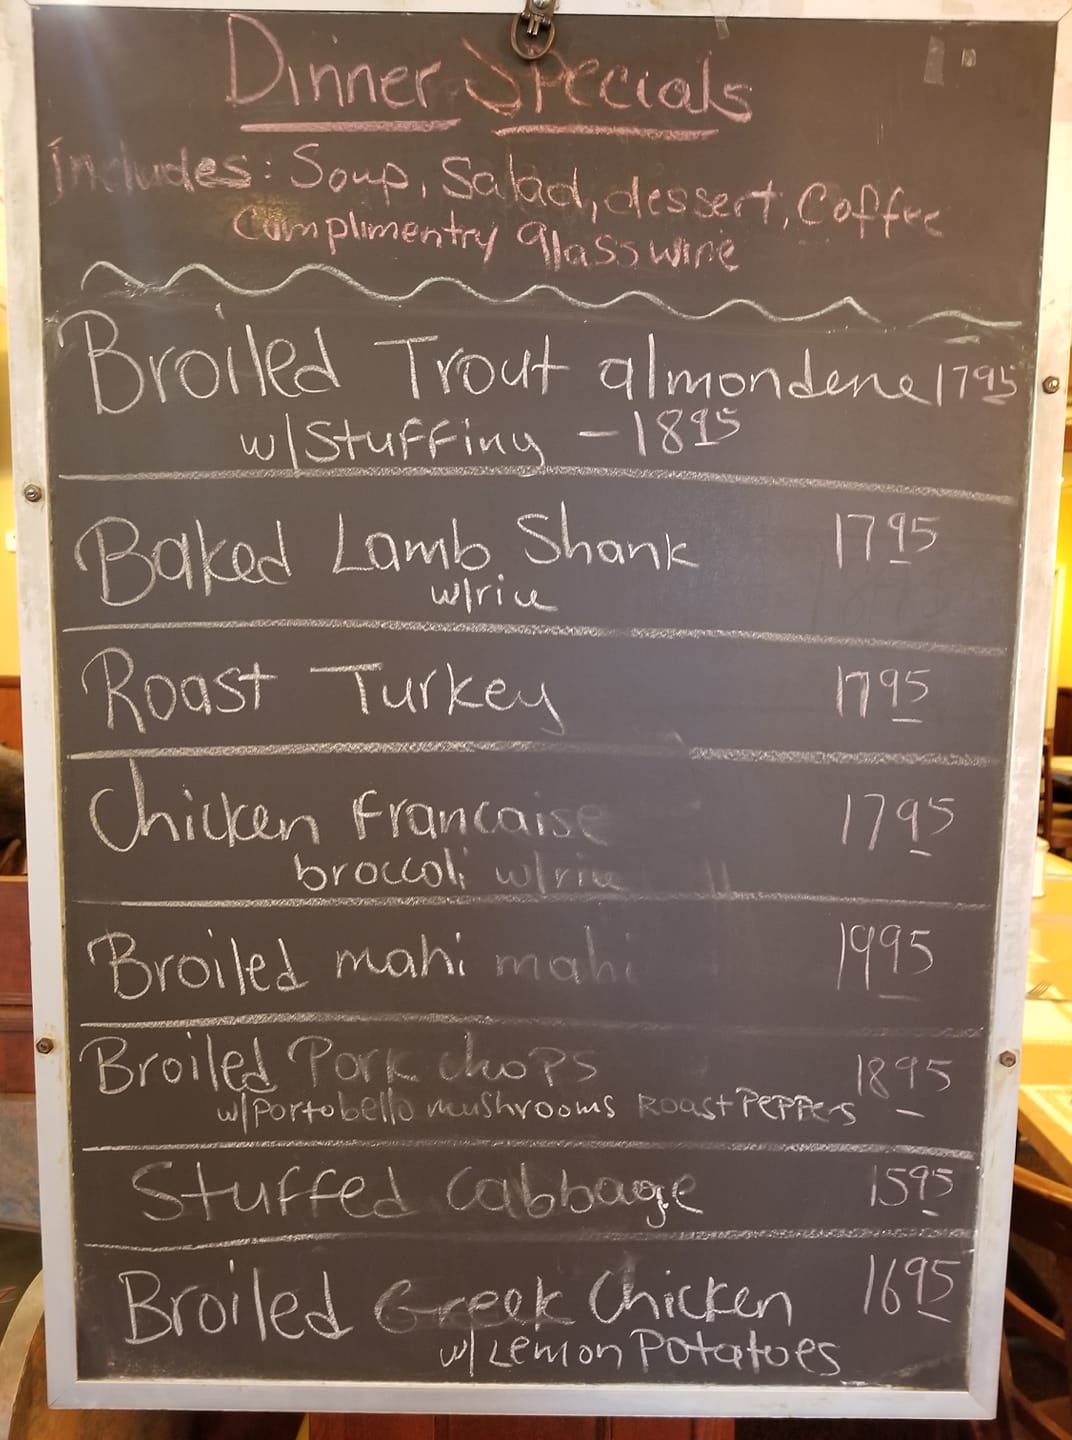 Dinner Specials
Includes: Soup, Salad, dessert, Coffee
Complimentry glass wine
Broiled Trout almondene 1795
w/Stuffing - 1895
Baked Lamb Shank 1795
w/rice
Roast Turkey 1795
Chicken Francaise 1795
broccoli w/rice
Broiled mahi mahi 1995
Broiled Pork chops 1895
w/portobello mushrooms Roast Peppers
Stuffed Cabbage 1595
Broiled Greek Chicken 1695
w/Lemon Potatoes